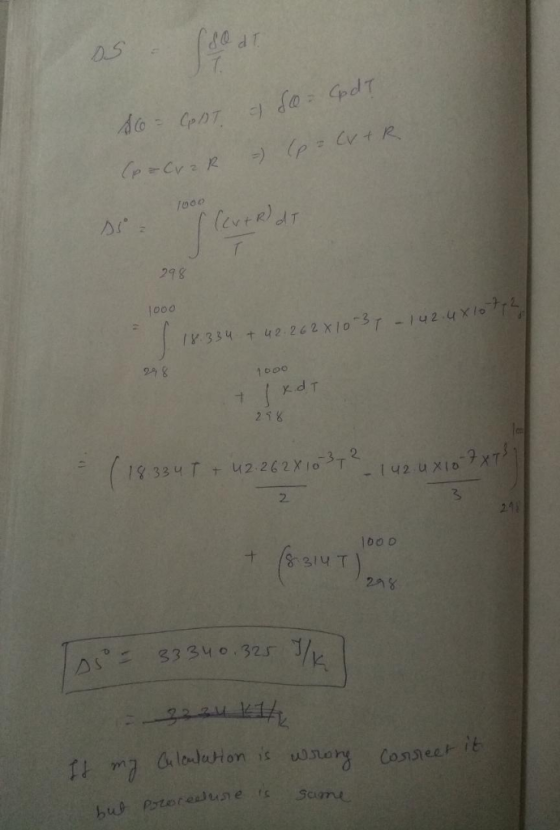 ΔS = ∫ δQ/T dT
ΔQ = CpΔT. ⇒ δQ = CpdT
Cp = Cv = R ⇒ Cp = Cv + R
ΔS° = ∫_298^1000 (Cv+R)/T dT
= ∫_298^1000 18.334 + 42.262×10^-3 T - 142.4×10^-7 T^2,
+ ∫_298^1000 R.dT
= (18.334T + 42.262×10^-3 T^2/2 - 142.4×10^-7 ×T^3/3)
+ (8.314T)_298^1000
ΔS° = 33340.325 J/K
= 3334 kJ/K
If my Calculation is wrong correct it
but procedure is same